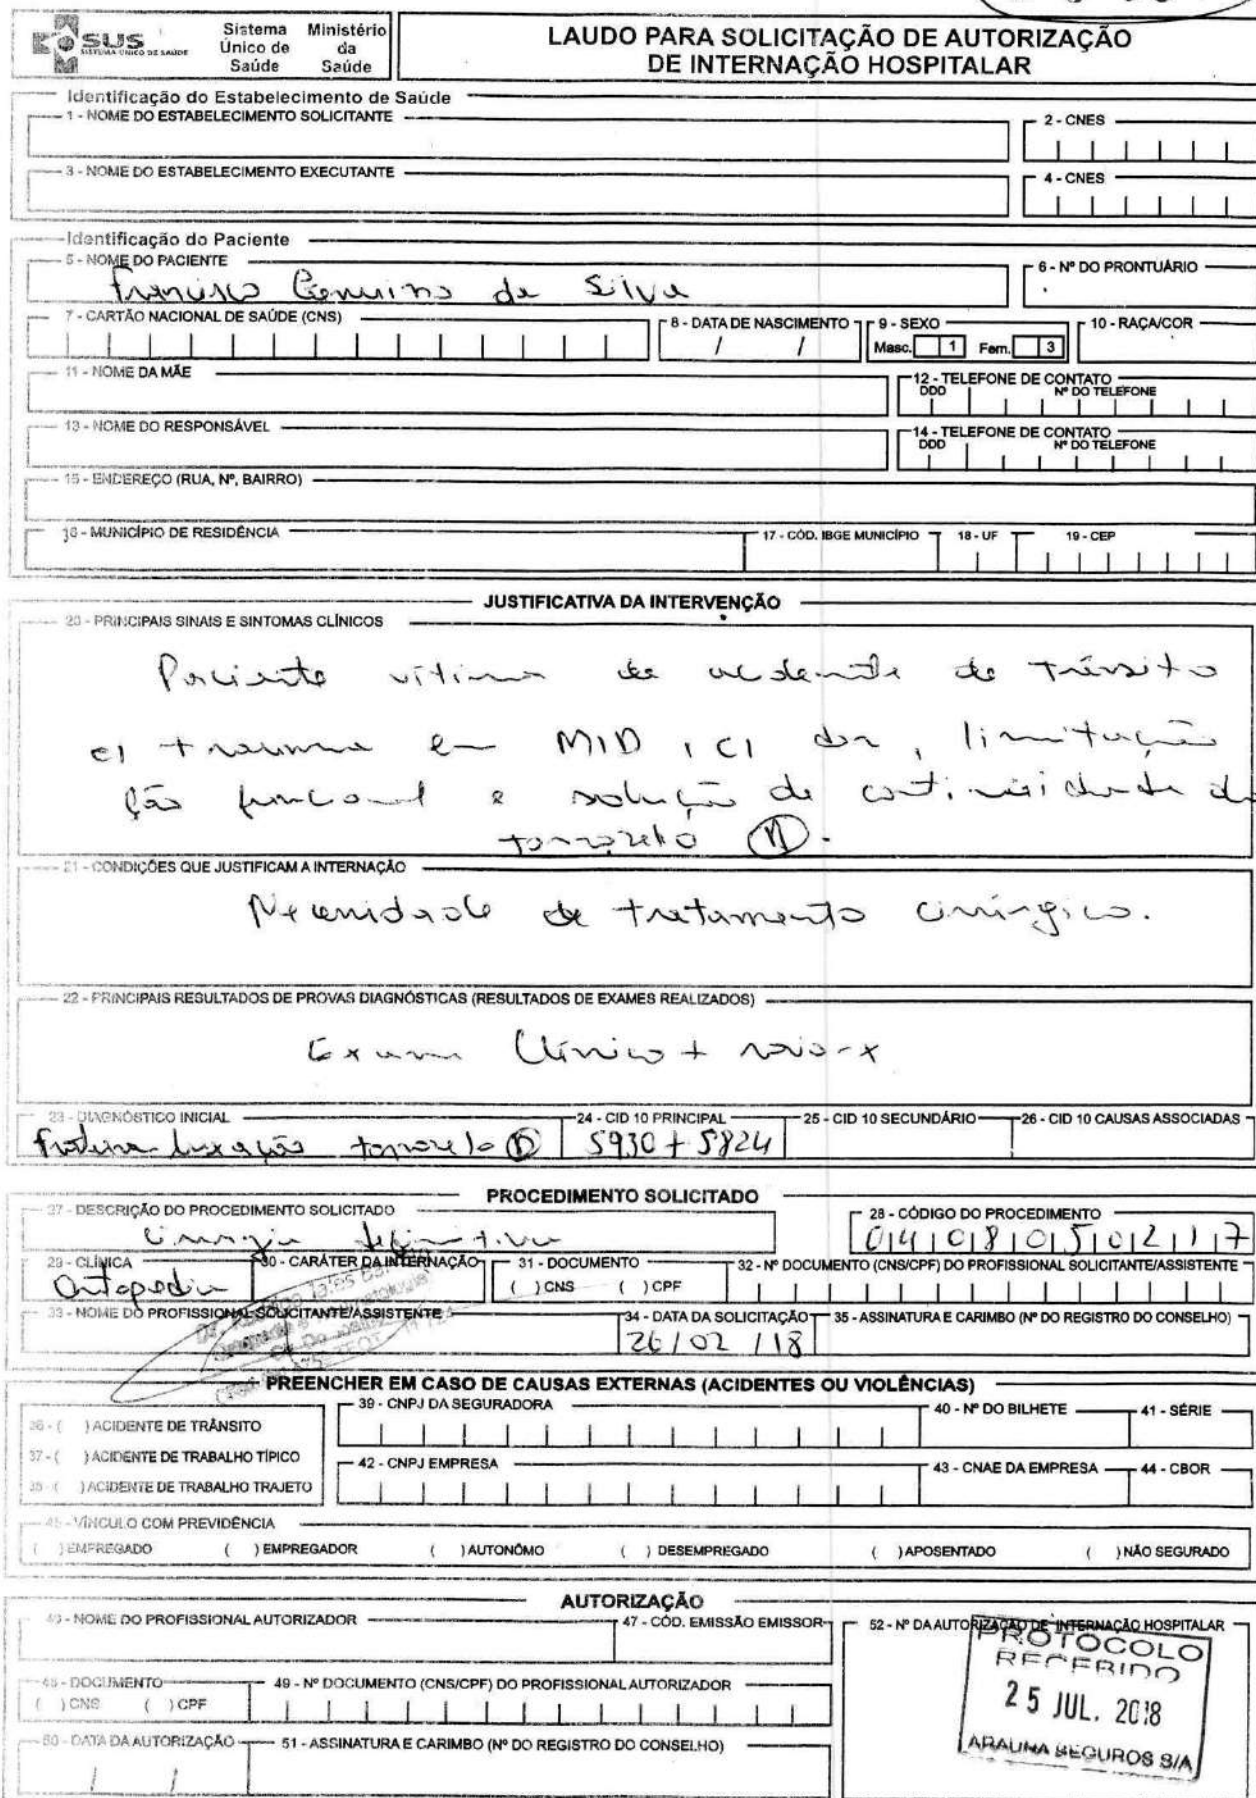 SUS
SISTEMA ÚNICO DE SAÚDE
Sistema Único de Saúde
Ministério da Saúde
LAUDO PARA SOLICITAÇÃO DE AUTORIZAÇÃO
DE INTERNAÇÃO HOSPITALAR
Identificação do Estabelecimento de Saúde
1 - NOME DO ESTABELECIMENTO SOLICITANTE
2 - CNES
3 - NOME DO ESTABELECIMENTO EXECUTANTE
4 - CNES
Identificação do Paciente
5 - NOME DO PACIENTE
6 - Nº DO PRONTUÁRIO
Francisco de Silva
7 - CARTÃO NACIONAL DE SAÚDE (CNS)
8 - DATA DE NASCIMENTO
/ /
9 - SEXO
Masc. 1 Fem. 3
10 - RAÇA/COR
11 - NOME DA MÃE
12 - TELEFONE DE CONTATO
DDD Nº DO TELEFONE
13 - NOME DO RESPONSÁVEL
14 - TELEFONE DE CONTATO
DDD Nº DO TELEFONE
15 - ENDEREÇO (RUA, Nº, BAIRRO)
16 - MUNICÍPIO DE RESIDÊNCIA
17 - CÓD. IBGE MUNICÍPIO
18 - UF
19 - CEP
JUSTIFICATIVA DA INTERVENÇÃO
20 - PRINCIPAIS SINAIS E SINTOMAS CLÍNICOS
Paciente vítima de acidente de trânsito
c/ trauma em MID, c/ dor, limitação
ção funcional e solução de continuidade do
tornozelo D.
21 - CONDIÇÕES QUE JUSTIFICAM A INTERNAÇÃO
Necessidade de tratamento cirúrgico.
22 - PRINCIPAIS RESULTADOS DE PROVAS DIAGNÓSTICAS (RESULTADOS DE EXAMES REALIZADOS)
Exame Clínico + raio-x
23 - DIAGNÓSTICO INICIAL
Fratura luxação tornozelo D
24 - CID 10 PRINCIPAL
S930 + S824
25 - CID 10 SECUNDÁRIO
26 - CID 10 CAUSAS ASSOCIADAS
PROCEDIMENTO SOLICITADO
27 - DESCRIÇÃO DO PROCEDIMENTO SOLICITADO
Cirurgia definitiva
28 - CÓDIGO DO PROCEDIMENTO
0408050217
29 - CLÍNICA
Ortopedia
30 - CARÁTER DA INTERNAÇÃO
31 - DOCUMENTO
( ) CNS ( ) CPF
32 - Nº DOCUMENTO (CNS/CPF) DO PROFISSIONAL SOLICITANTE/ASSISTENTE
33 - NOME DO PROFISSIONAL SOLICITANTE/ASSISTENTE
34 - DATA DA SOLICITAÇÃO
26/02/18
35 - ASSINATURA E CARIMBO (Nº DO REGISTRO DO CONSELHO)
PREENCHER EM CASO DE CAUSAS EXTERNAS (ACIDENTES OU VIOLÊNCIAS)
36 - ( ) ACIDENTE DE TRÂNSITO
37 - ( ) ACIDENTE DE TRABALHO TÍPICO
38 - ( ) ACIDENTE DE TRABALHO TRAJETO
39 - CNPJ DA SEGURADORA
40 - Nº DO BILHETE
41 - SÉRIE
42 - CNPJ EMPRESA
43 - CNAE DA EMPRESA
44 - CBOR
45 - VÍNCULO COM PREVIDÊNCIA
( ) EMPREGADO ( ) EMPREGADOR ( ) AUTONÔMO ( ) DESEMPREGADO ( ) APOSENTADO ( ) NÃO SEGURADO
AUTORIZAÇÃO
46 - NOME DO PROFISSIONAL AUTORIZADOR
47 - CÓD. EMISSÃO EMISSOR
52 - Nº DA AUTORIZAÇÃO DE INTERNAÇÃO HOSPITALAR
48 - DOCUMENTO
( ) CNS ( ) CPF
49 - Nº DOCUMENTO (CNS/CPF) DO PROFISSIONAL AUTORIZADOR
50 - DATA DA AUTORIZAÇÃO
/ /
51 - ASSINATURA E CARIMBO (Nº DO REGISTRO DO CONSELHO)
PROTOCOLO
RECEBIDO
25 JUL. 2018
ARAUNA SEGUROS S/A